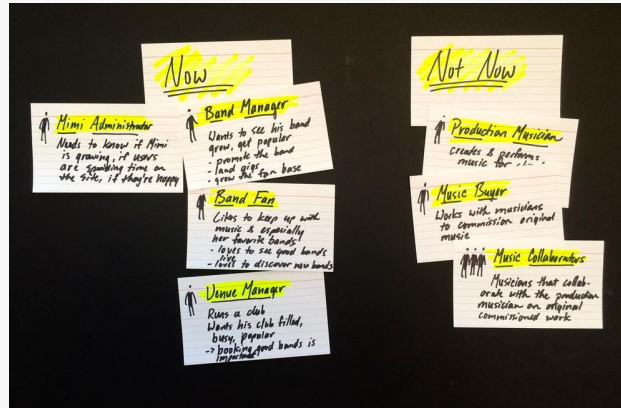 Now
Mimi Administrator
Needs to know if Mimi
is growing, if users
are spending time on
the site, if they're happy
Band Manager
Wants to see his band
grow, get popular
- promote the band
- land gigs
- grow the fan base
Band Fan
Likes to keep up with
music & especially
her favorite bands
- loves to see good bands
live
- loves to discover new bands
Venue Manager
Runs a club
Wants his club filled,
busy, popular
-> booking good bands is
important
Not Now
Production Musician
creates & performs
music for
Music Buyer
Works with musicians
to commission original
music
Music Collaborators
Musicians that collab-
orate with the production
musician on original
commissioned work